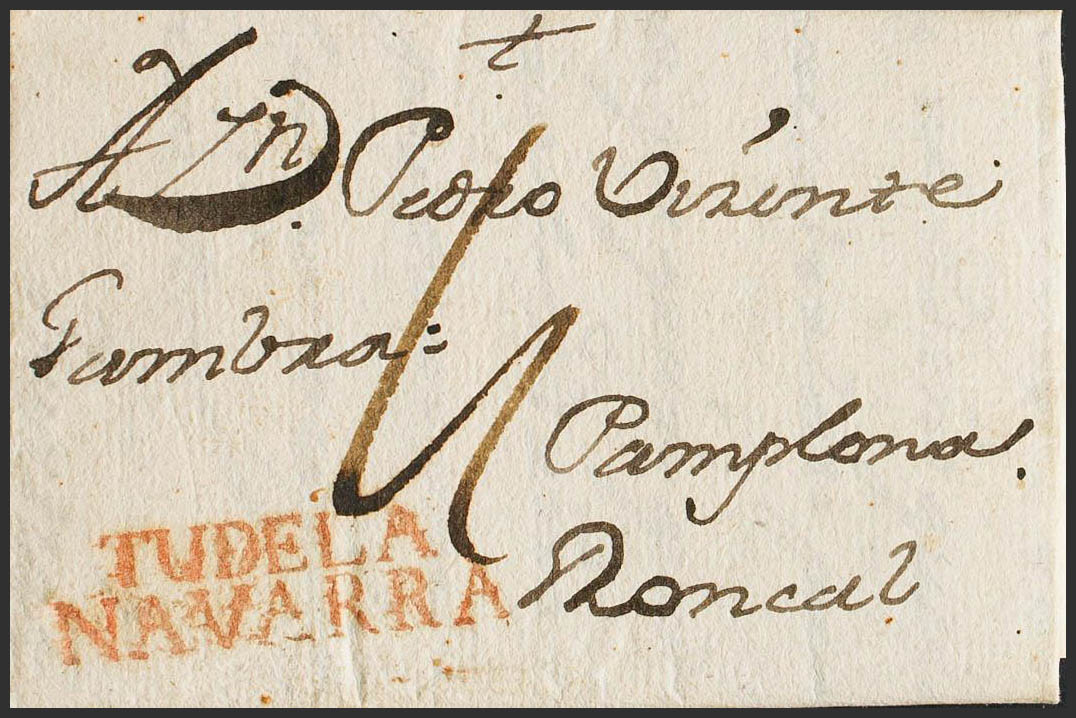 A Dn. Pedro Vizente
Gambra=
4
Pamplona.
Roncal
TUDELA
NAVARRA